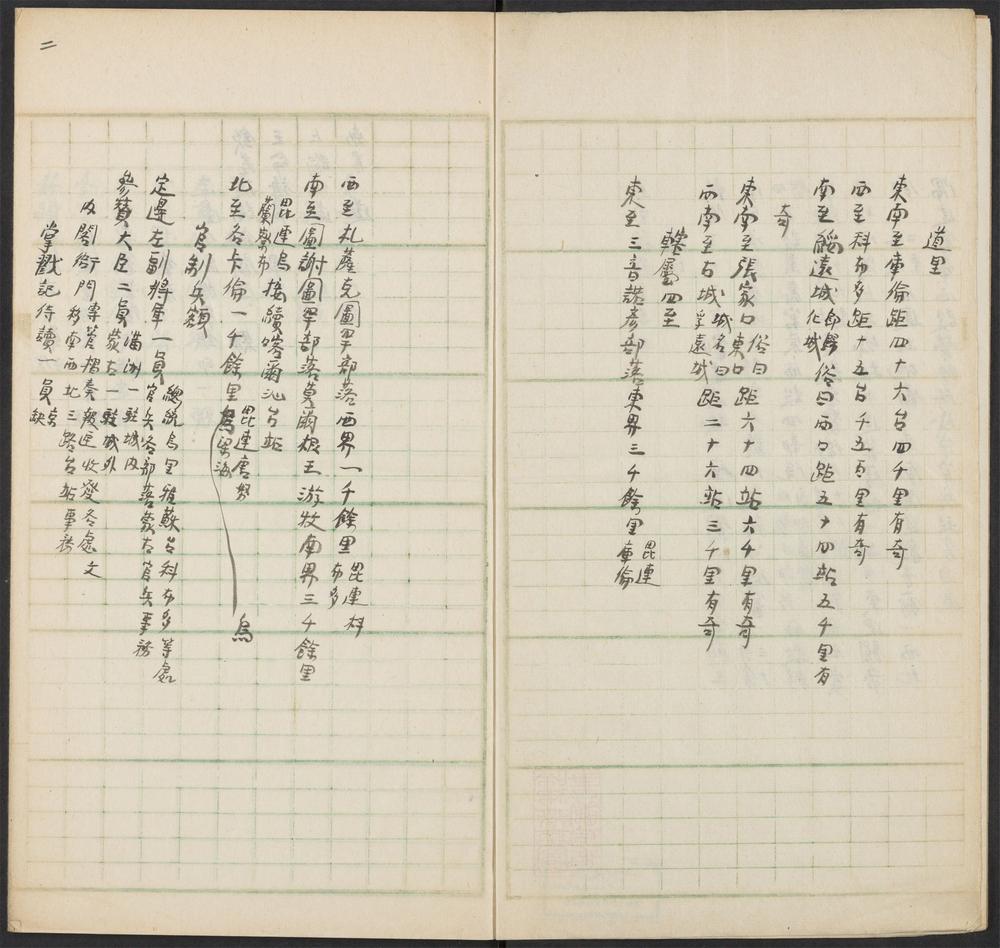 道里
東南至庫倫距四十六台四千里有奇
西至科布多距十五台千五百里有奇
南至綏遠城即歸化城俗曰西口距五十四站五千里有
奇
東南至張家口俗曰東口距六十四站六千里有奇
西南至古城城名曰孚遠城距二十六站三千里有奇
轄屬四至
東至三音諾彥部落東界三千餘里毘連庫倫
西至札薩克圖罕部落西界一千餘里毘連科布多
南至圖謝圖罕部落莫爾根王游牧南界三千餘里
毘連烏蘭察布接續喀爾沁台站
北至各卡倫一千餘里毘連唐努烏梁海 烏
官制兵額
定邊左副將軍一員總統烏里雅蘇台科布多等處官兵各部落蒙古官兵事務
參贊大臣二員滿洲一駐城內蒙古一駐城外
內閣衙門專管摺奏報匣收發各處文移南西北三路台站事務
掌戳記侍讀一員
二